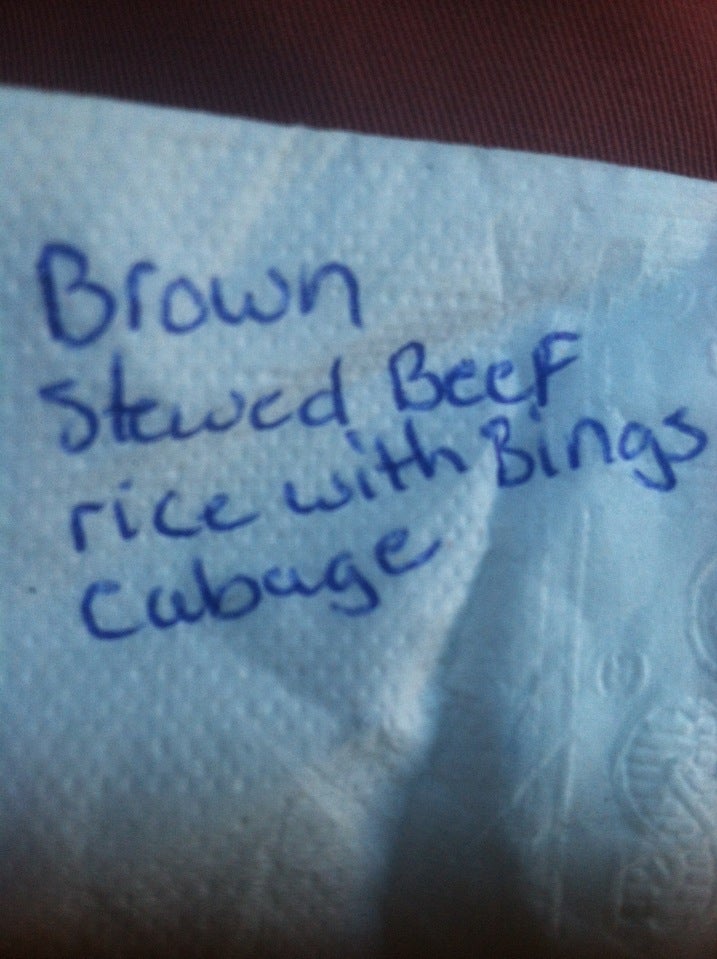 Brown
Stewed BeeF
rice with Bings
Cabage